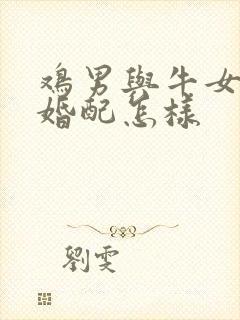 鸡男與牛女
婚配怎樣
劉雯